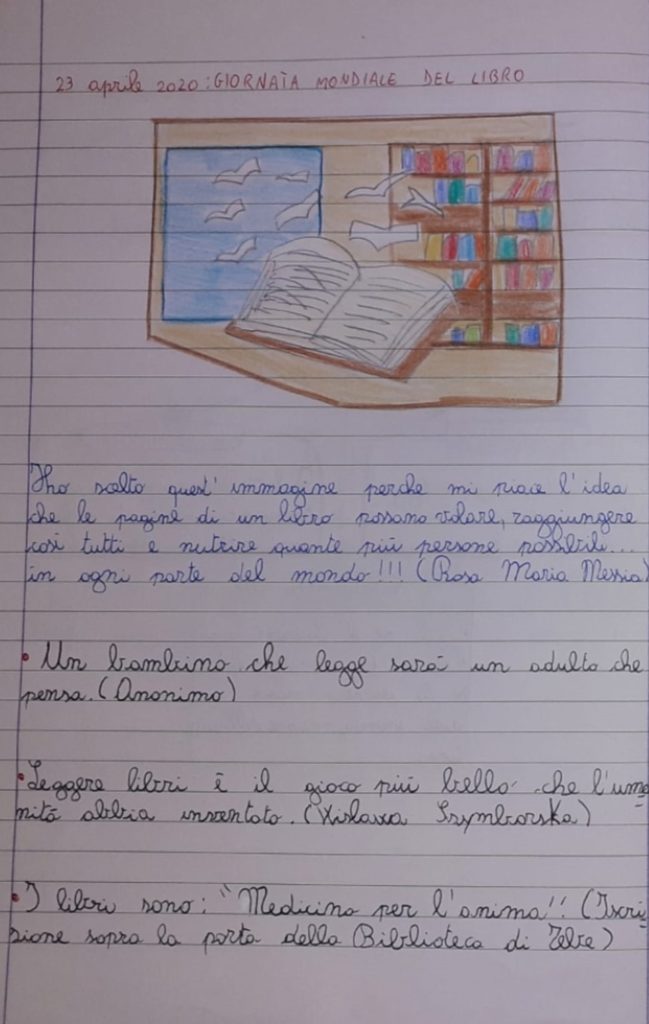 23 aprile 2020: GIORNATA MONDIALE DEL LIBRO
Ho scelto quest'immagine perche mi piace l'idea
che le pagine di un libro possano volare, raggiungere
così tutti e nutrire quante più persone possibili...
in ogni parte del mondo!!! (Rosa Maria Messia)
• Un bambino che legge sarà un adulto che
pensa. (Anonimo)
• Leggere libri è il gioco più bello che l'uma
nità abbia inventato. (Wislawa Szymborska)
• I libri sono: "Medicina per l'anima"! (Iscri
zione sopra la porta della Biblioteca di Tebe)